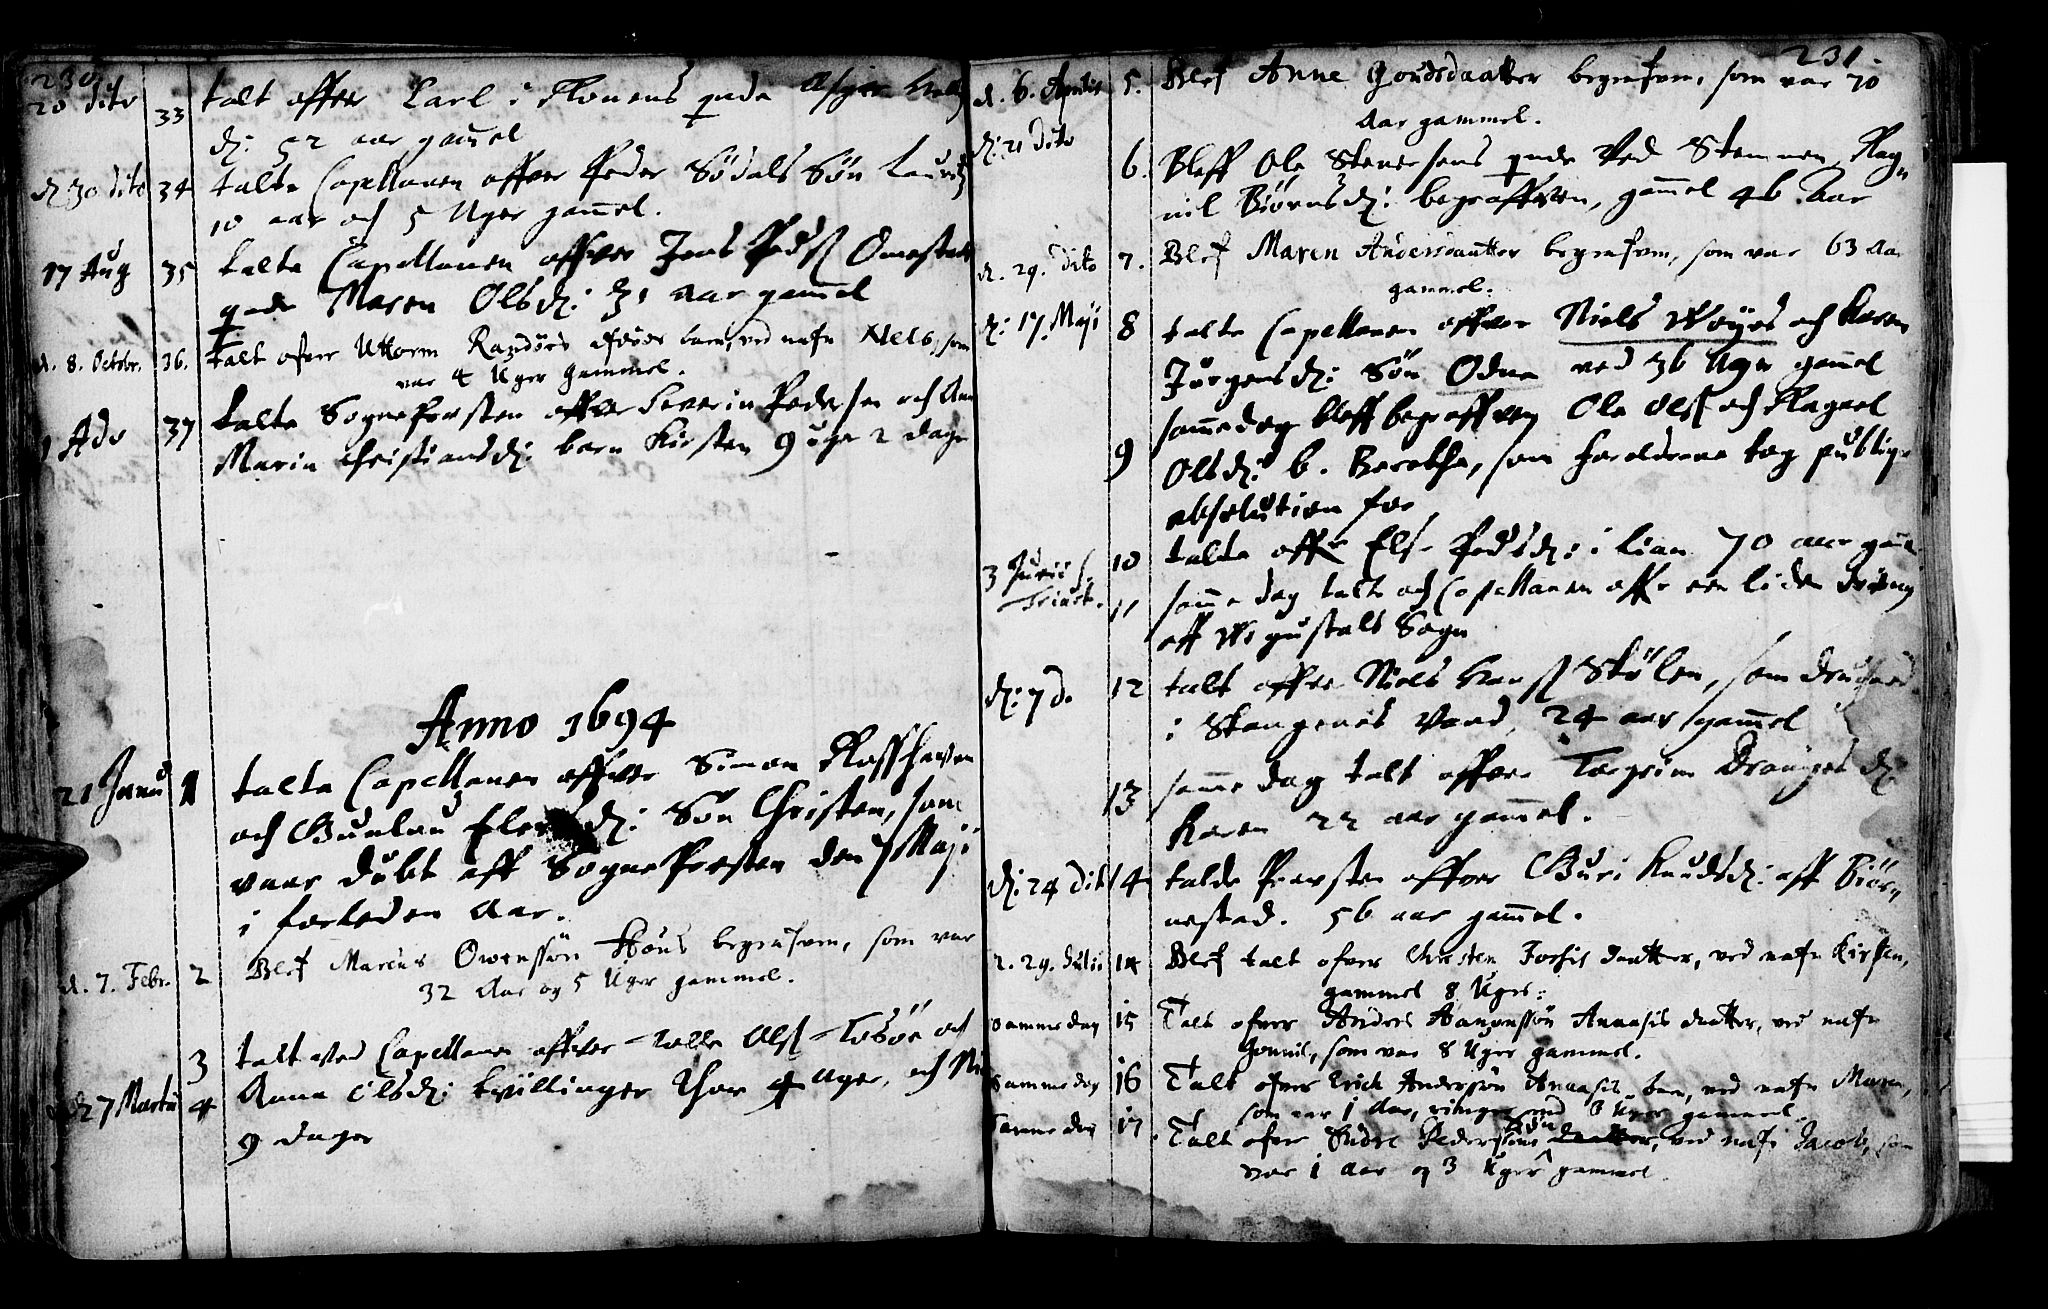 230
20 dito 33 talt offver Carl i Flouens qvde
d: 52 aar gamel
d 30 dito 34 talte Capellanen offver Peder Södals Sön Lauritz
10 aar och 5 Uger gamel.
17 Aug 35 talte Capellanen offver Jens Peds Omestads
qvde Maren Olsd: 31 aar gamel
d. 8. Octobr. 36. talt ofver Uttorm Randörs barn, ved nafn Nels, som
var 4 Uger Gammel.
1 Adv 37 talte SognePresten offver Severin Pedersen och An
Maria Christiansd: barn Kirsten 9 uger 2 dage
Anno 1694
21 Janu 1 talte Capellanen offver Simon Flossharen
och Gunlau d: Sön Christen, som
vaar dübt aff SognePresten den 7 Maji
i forleden Aar.
d. 7. Febr. 2 Blef Marcus Owenssön begrafven, som var
32 Aar og 5 Uger gammel.
3 talt ved Capellanen offver Tolle Ols Toböe och
d 7 Martii 4 Anna Olsd: tvillinger Thor 4 uger, och Ni
9 dager
231
d. 6. Aprilis 5. Blef Anne Goudsdaatter begrafven, som var 70
Aar gammel.
d: 21 dito 6. Bleff Ole Stenersens qvde Ved Stemmen, Rag„
nil Biörnsd: begraffven, gamel 46 Aar
d. 29. dito 7. Blef Maren Andersdaatter begrafven, som var 63 Aar
gammel.
d: 17. Maji 8 talte Capellanen offver Niels Weyes och Karen
Jörgensd: Sön Odne ved 36 Uger gamel
9 samme dag bleff begraffven Ole Ols och Ragnel
Olsd: b. Berethe, som foreldrene tog publiqe
absolution for
3 Junii f. Trinit. 10 talte offver Else Pedsd: i Lian 70 aar gamel
11 samme dag talte och Capellanen offver een liden dreng
aff Sogn
d: 7 d. 12 talt offver Niels Hans Skölen, som druchnede
i Skougenes Vand, 24 aar gamel
13 samme dag talt offver Torgrim Dranges d:
Karen 22 aar gamel.
d: 24 dito 14 talde Presten offver Guri Knudsd: aff Biör„
nestad. 56 aar gamel.
d. 29. Julii 14 Blef talt ofver Christen Jochis daatter, ved nafn Kirsten,
gammel 8 Uger:
Samme dag 15 Talt ofver Anders Aanonssön Anaasis daatter, ved nafn
Gonnil, som var 8 Uger gammel.
Samme dag 16 Talt ofver Erich Anderssön Anaasis barn, ved nafn Maren,
som var 1 Aar, ringere end 8 Uger gammel.
Samme dag 17. Talt ofver Sudre Pederssöns Sön daatter, ved nafn Jacob, som
var 1 aar og 3 Uger gammel